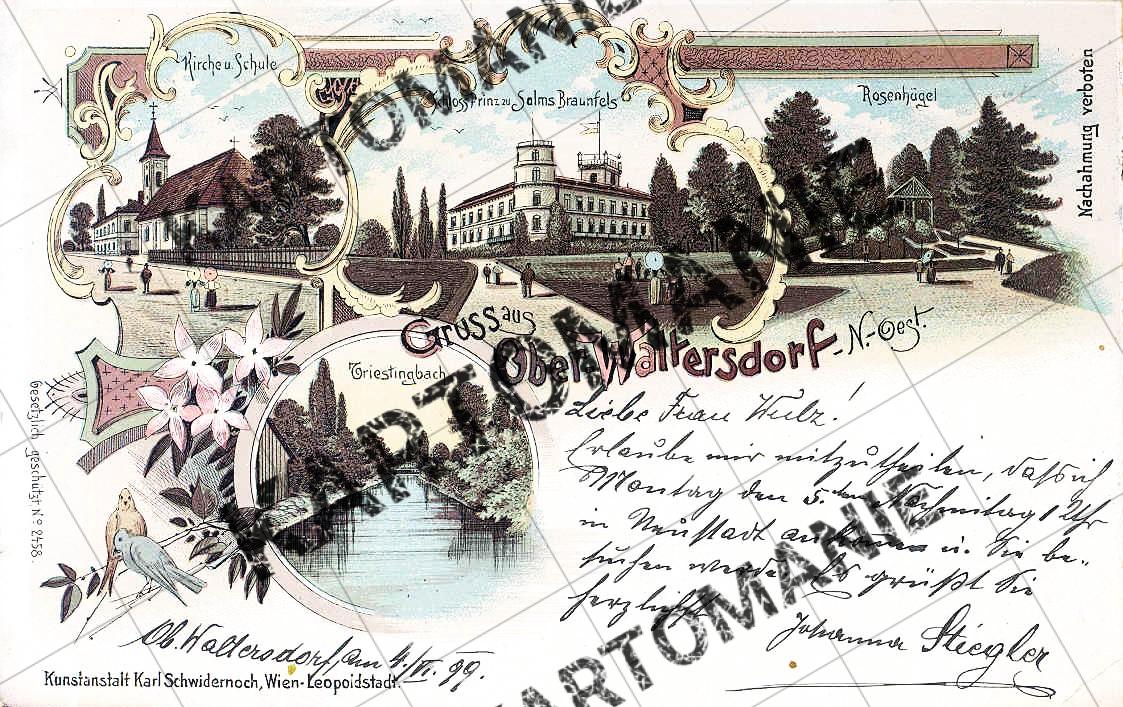 Kirche u. Schule
Schloss Prinz zu Salms Braunfels
Rosenhügel
Nachahmung verboten
Gruss aus
Ober-Waltersdorf-N.-Oest.
Triestingbach
Gesetzlich geschützt No 2458.
Liebe Frau Wulz!
Erlaube mir mitzutheilen, dass ich
Montag den 5. ten Nachmitag 1 Uhr
in Neustadt ankomme u. Sie be-
suchen werde. Es grüßt Sie
herzlichst
Johanna Stiegler
Ob. Waltersdorf, am 4./VI. 99.
Kunstanstalt Karl Schwidernoch, Wien-Leopoldstadt.
KARTOMANIE
KARTOMANIE
KARTOMANIE
KARTOMANIE